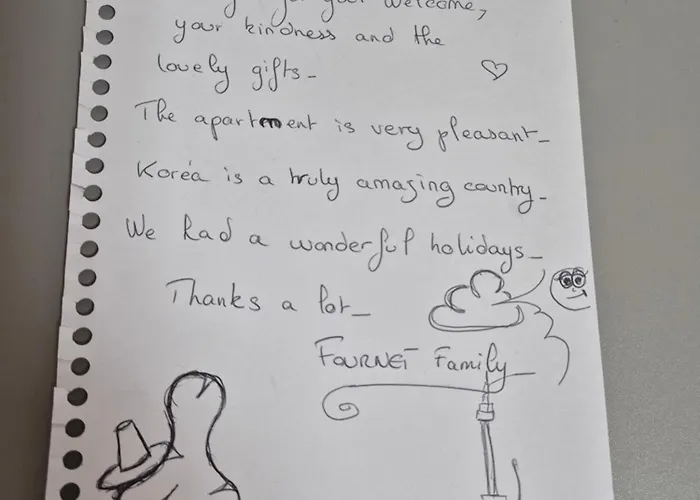 your welcome,
your kindness and the
lovely gifts_
The apartment is very pleasant_
Koréa is a truly amazing country_
We had a wonderful holidays_
Thanks a lot_
FOURNET Family_